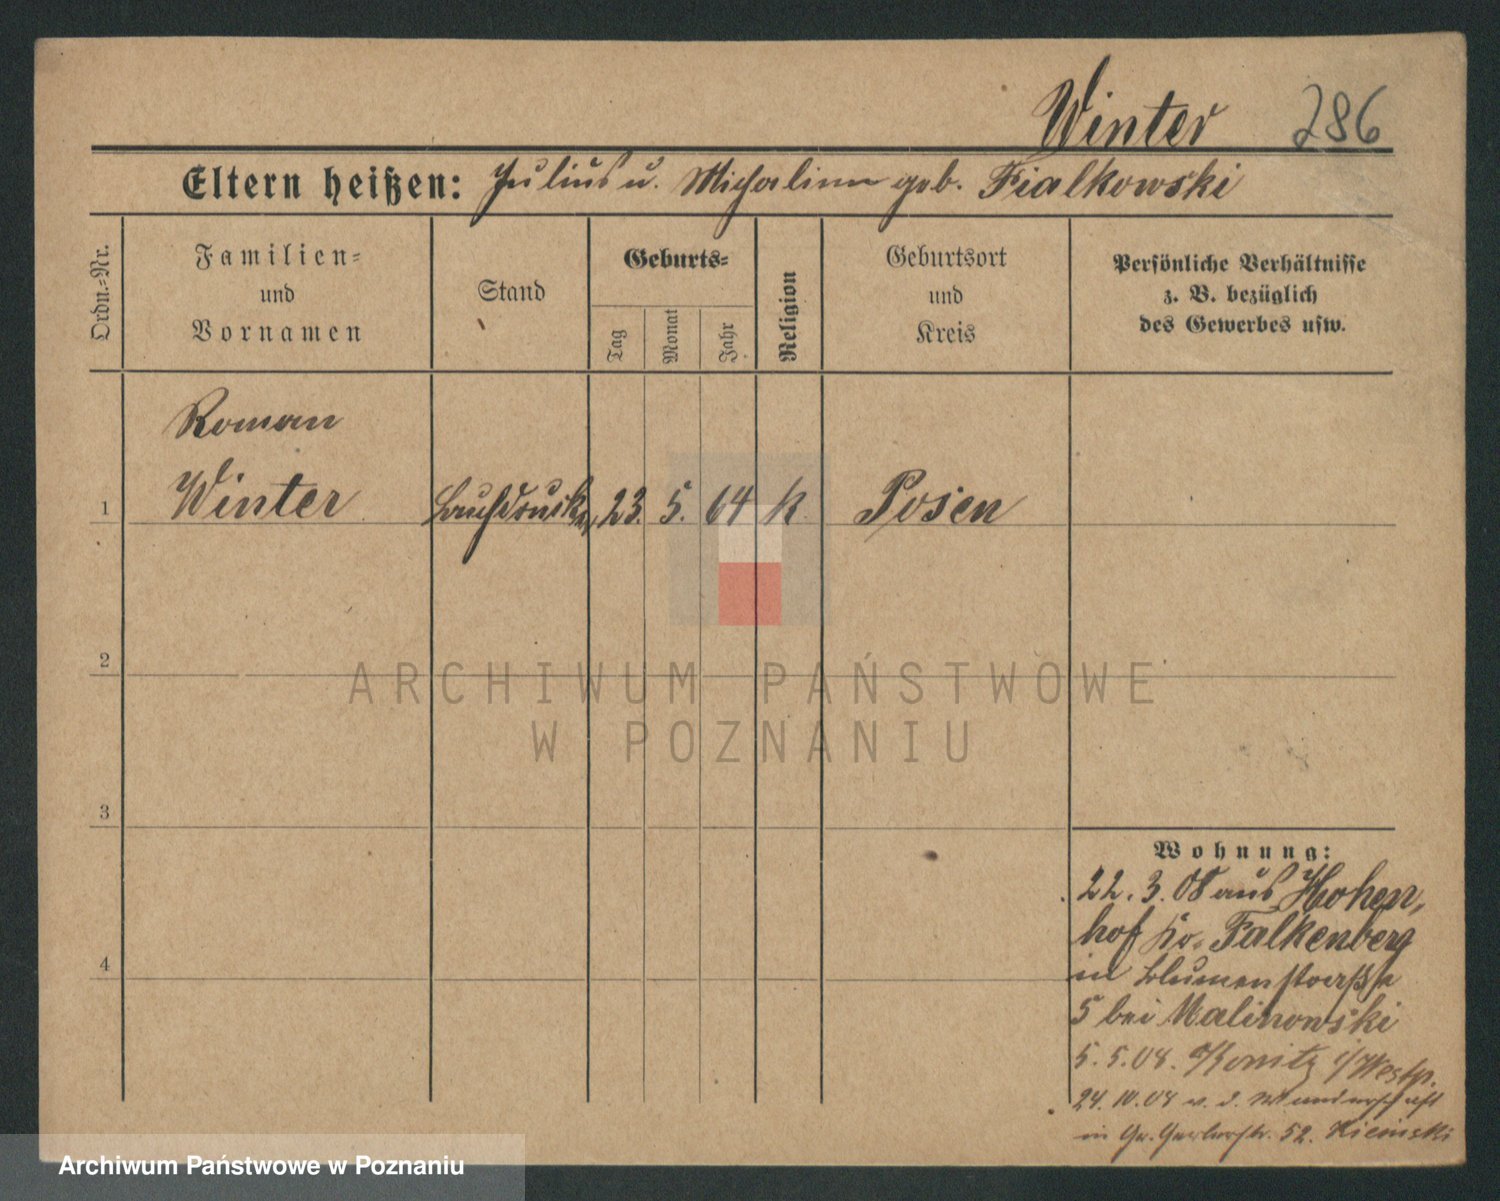 Winter 286
Eltern heißen: Julius u. Michalina geb. Fialkowski
Ordn.-Nr.
Familien-
und
Vornamen
Stand
Geburts-
Tag
Monat
Jahr
Religion
Geburtsort
und
Kreis
Persönliche Verhältnisse
z. B. bezüglich
des Gewerbes usw.
Roman
1 Winter Buchdrucker 23. 5. 64 k. Posen
2
3
4
Wohnung:
22. 3. 08 aus Hohen,
hof Kr. Falkenberg
in Blumenstraße
5 bei Malinowski
5. 5. 08. Konitz i/Westp.
24. 10. 08 v. d. Wanderschaft
in Gr. Gerberstr. 52.
ARCHIWUM PAŃSTWOWE
W POZNANIU
Archiwum Państwowe w Poznaniu